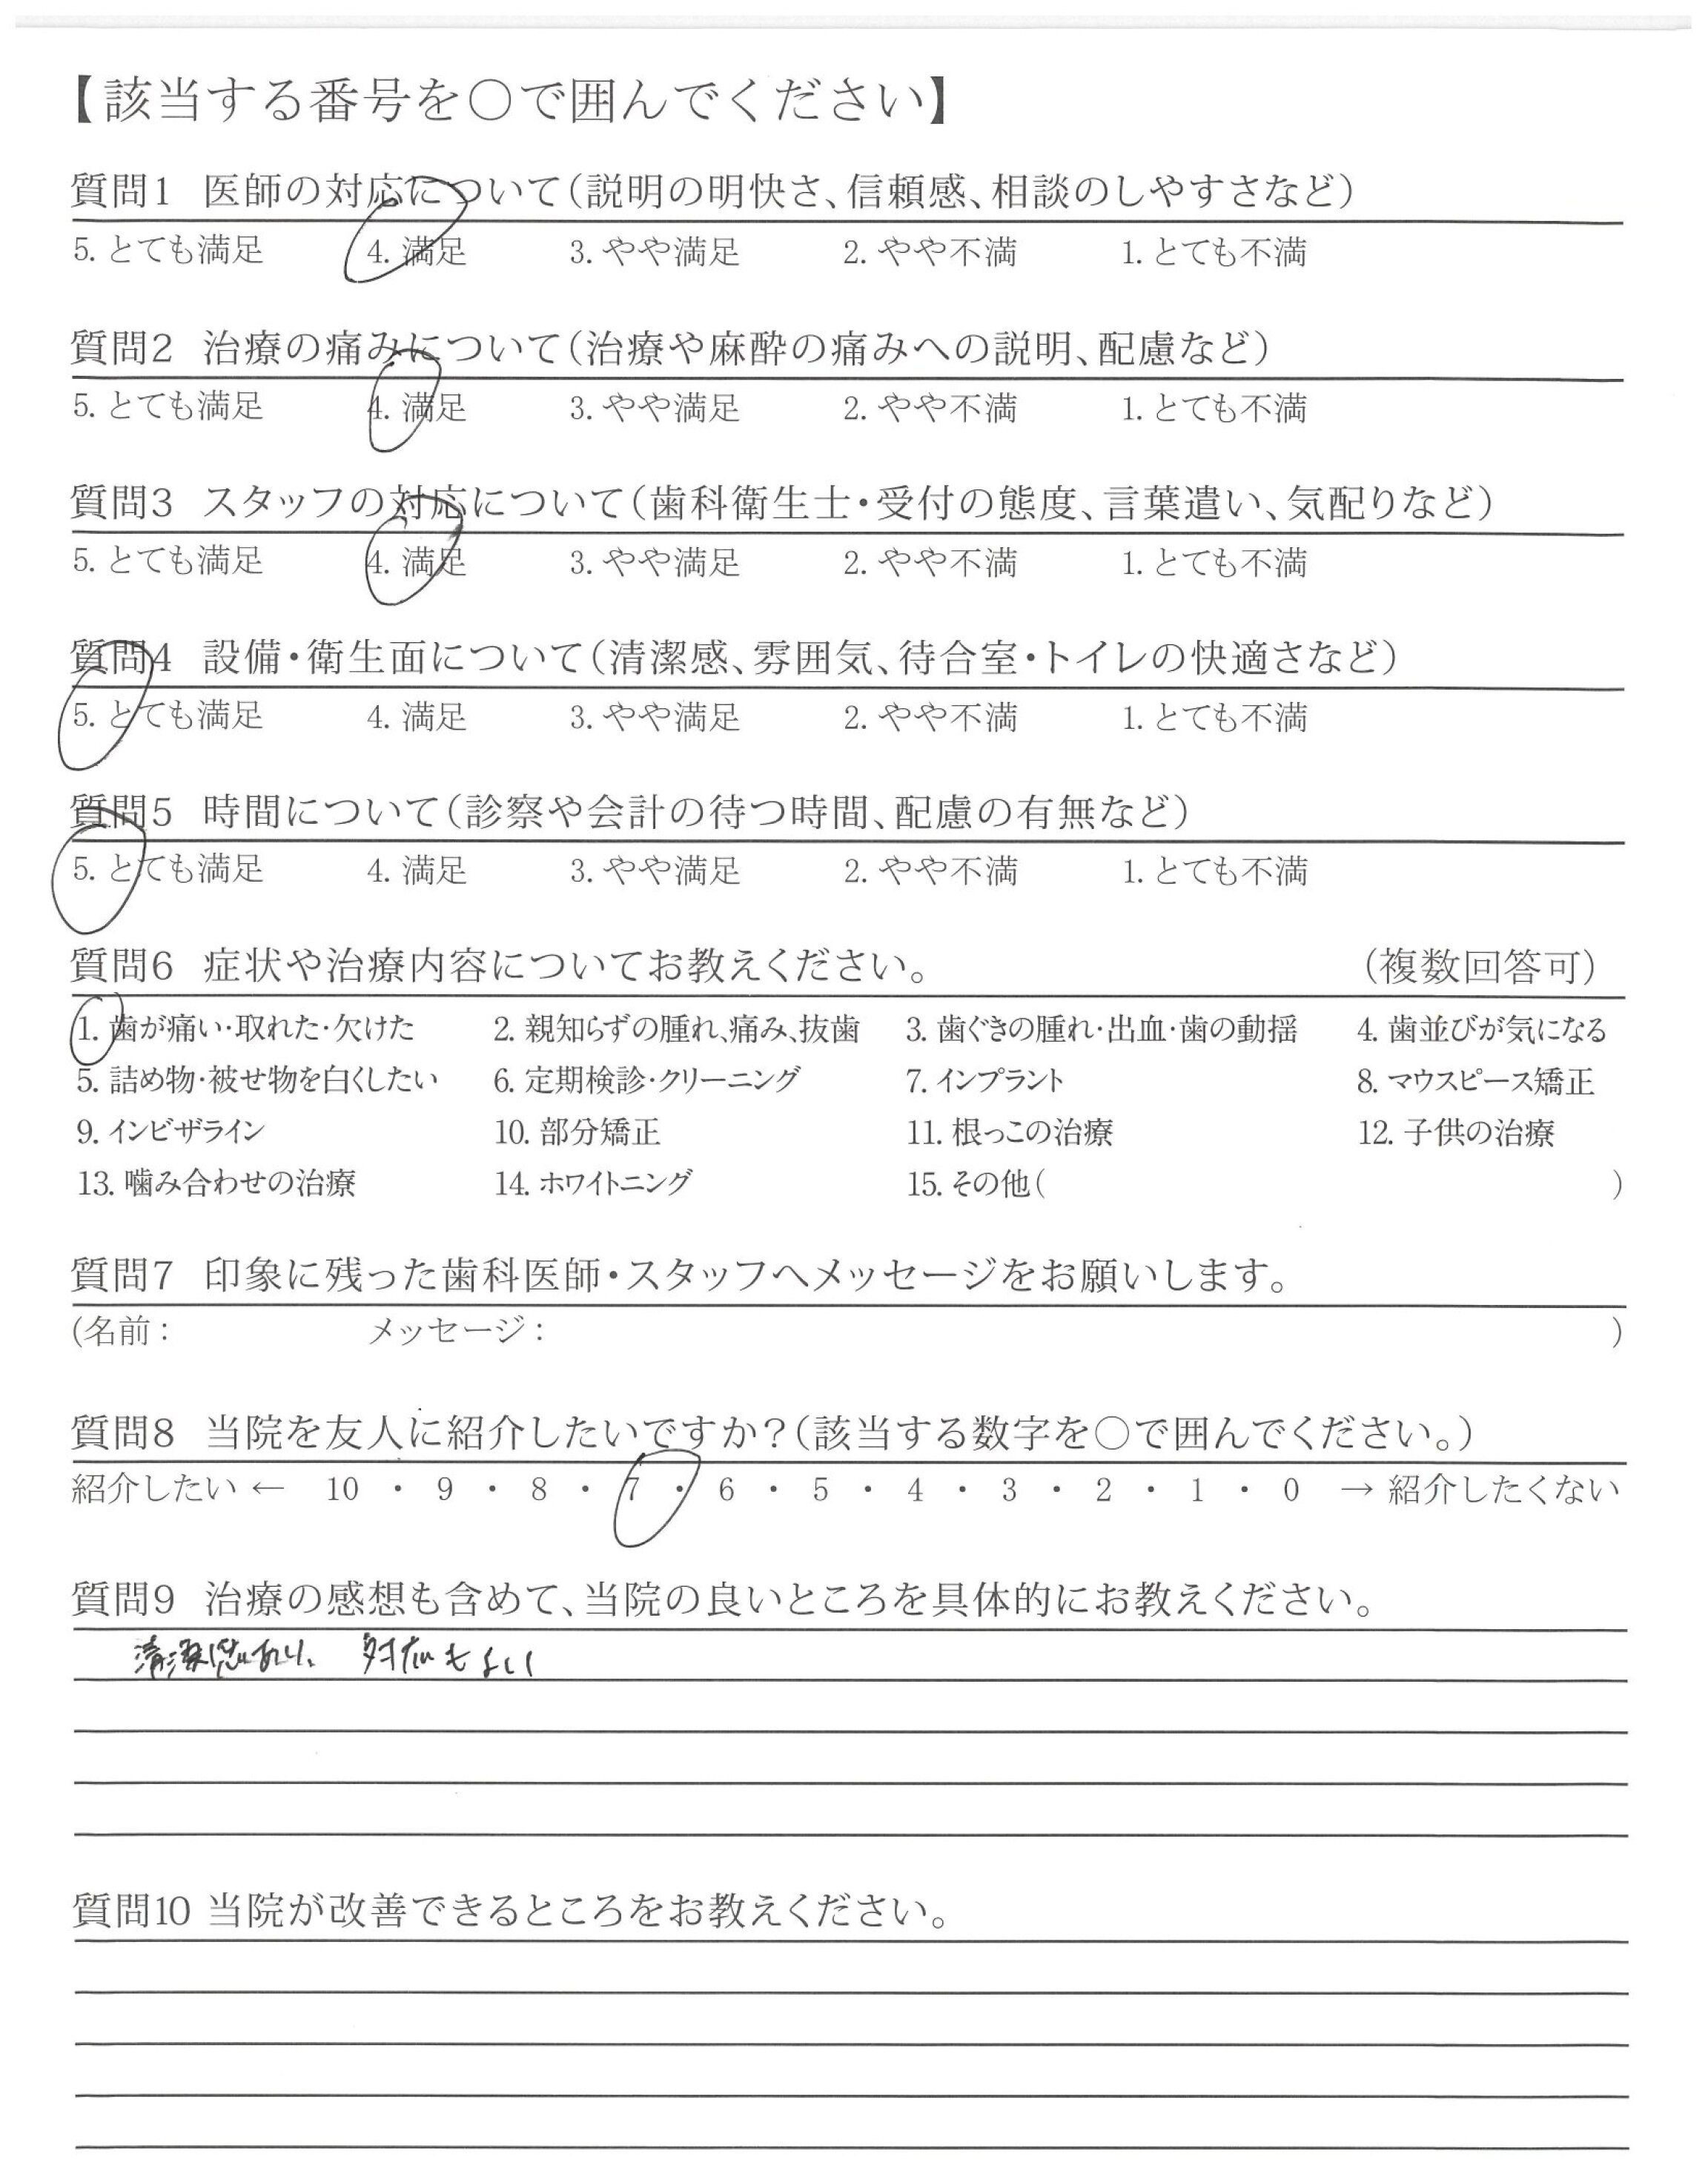 【該当する番号を○で囲んでください】
質問1 医師の対応について（説明の明快さ、信頼感、相談のしやすさなど）
5. とても満足 4. 満足 3. やや満足 2. やや不満 1. とても不満
質問2 治療の痛みについて（治療や麻酔の痛みへの説明、配慮など）
5. とても満足 4. 満足 3. やや満足 2. やや不満 1. とても不満
質問3 スタッフの対応について（歯科衛生士・受付の態度、言葉遣い、気配りなど）
5. とても満足 4. 満足 3. やや満足 2. やや不満 1. とても不満
質問4 設備・衛生面について（清潔感、雰囲気、待合室・トイレの快適さなど）
5. とても満足 4. 満足 3. やや満足 2. やや不満 1. とても不満
質問5 時間について（診察や会計の待つ時間、配慮の有無など）
5. とても満足 4. 満足 3. やや満足 2. やや不満 1. とても不満
質問6 症状や治療内容についてお教えください。 （複数回答可）
1. 歯が痛い・取れた・欠けた 2. 親知らずの腫れ、痛み、抜歯 3. 歯ぐきの腫れ・出血・歯の動揺 4. 歯並びが気になる
5. 詰め物・被せ物を白くしたい 6. 定期検診・クリーニング 7. インプラント 8. マウスピース矯正
9. インビザライン 10. 部分矯正 11. 根っこの治療 12. 子供の治療
13. 噛み合わせの治療 14. ホワイトニング 15. その他（ ）
質問7 印象に残った歯科医師・スタッフへメッセージをお願いします。
（名前： メッセージ： ）
質問8 当院を友人に紹介したいですか？（該当する数字を○で囲んでください。）
紹介したい ← 10 ・ 9 ・ 8 ・ 7 ・ 6 ・ 5 ・ 4 ・ 3 ・ 2 ・ 1 ・ 0 → 紹介したくない
質問9 治療の感想も含めて、当院の良いところを具体的にお教えください。
清潔感あり、対応もよい
質問10 当院が改善できるところをお教えください。